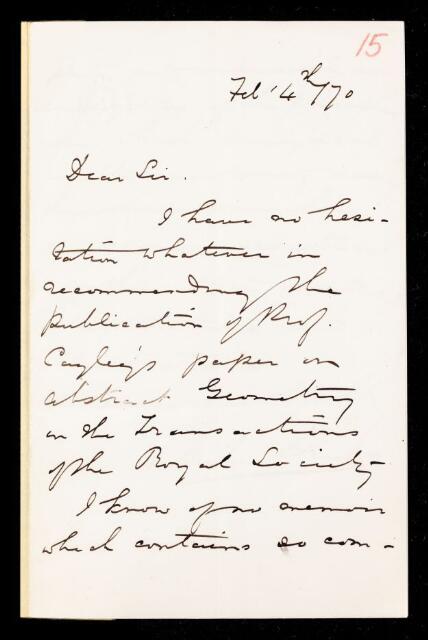 15
Feb 4th/70
Dear Sir.
I have no hesi-
tation whatever in
recommending the
publication of Prof.
Cayley's paper on
abstract Geometry
in the Transactions
of the Royal Society
I know of no memoir
which contains so com-